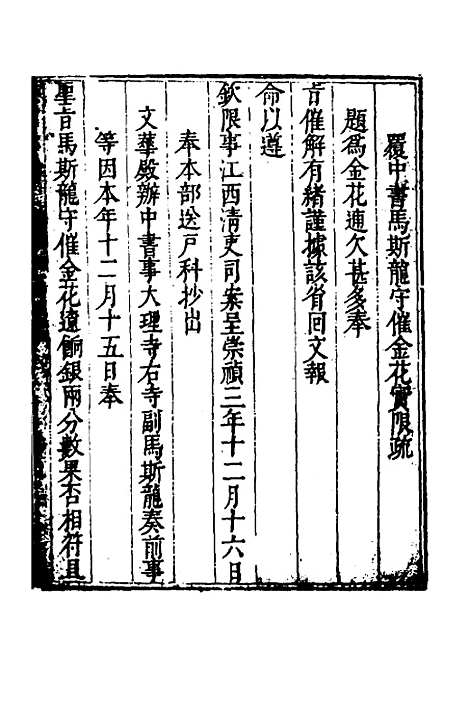 覆中書馬斯龍守催金花實限疏
題爲金花逋欠甚多奉
旨催解有緒謹據該省回文報
命以遵
欽限事江西清吏司案呈崇禎三年十二月十六日
奉本部送戶科抄出
文華殿辦中書事大理寺右寺副馬斯龍奏前事
等因本年十二月十五日奉
聖旨馬斯龍守催金花違銀兩分數果否相符且